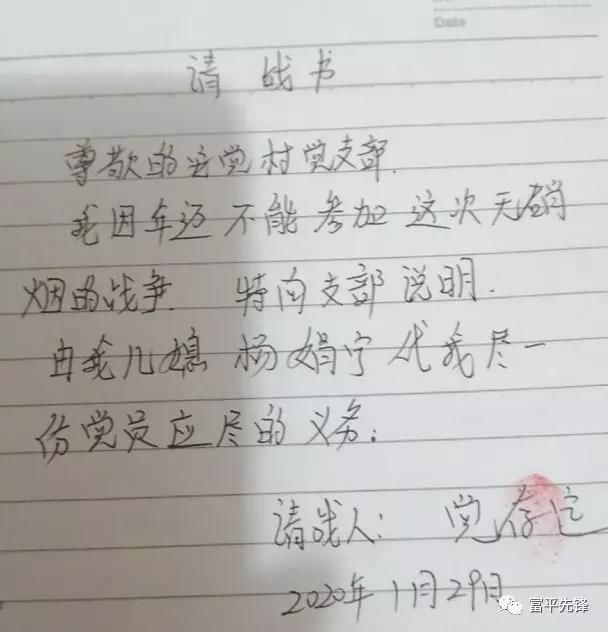 Date
请战书
尊敬的 党村党支部.
我因年迈不能参加这次无硝
烟的战争. 特向支部说明.
由我儿媳杨娟宁代我尽一
份党员应尽的义务;
请战人: 党存
2020年1月29日
富平先锋